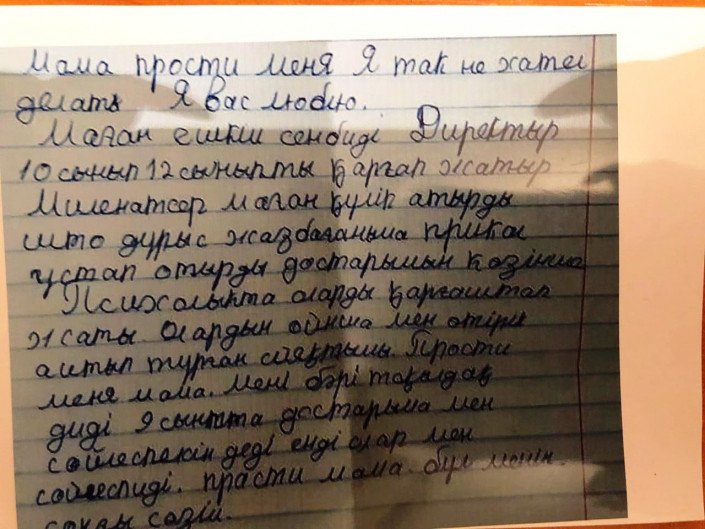 Мама прости меня Я так не хател
делать Я вас люблю.
Маған ешкім сенбиді Директыр
10 сынып 12 сыныпты қарғап жатыр
Миленатсер маған күліп атырды
што дұрыс жазбағаныма прикол
ұстап отырды достарымын көзінша
Психолыпта оларды қарғоштап
жаты. Олардын ойнша мен өтірік
айтып тұрған сияқтымы Прости
меня мама. Мені бәрі
диді 9 сынпта достарыма мен
сөйлеспекін деді енді олар мен
сөйлеспиді. прасти мама. бұл менің
соңғы сөзім.